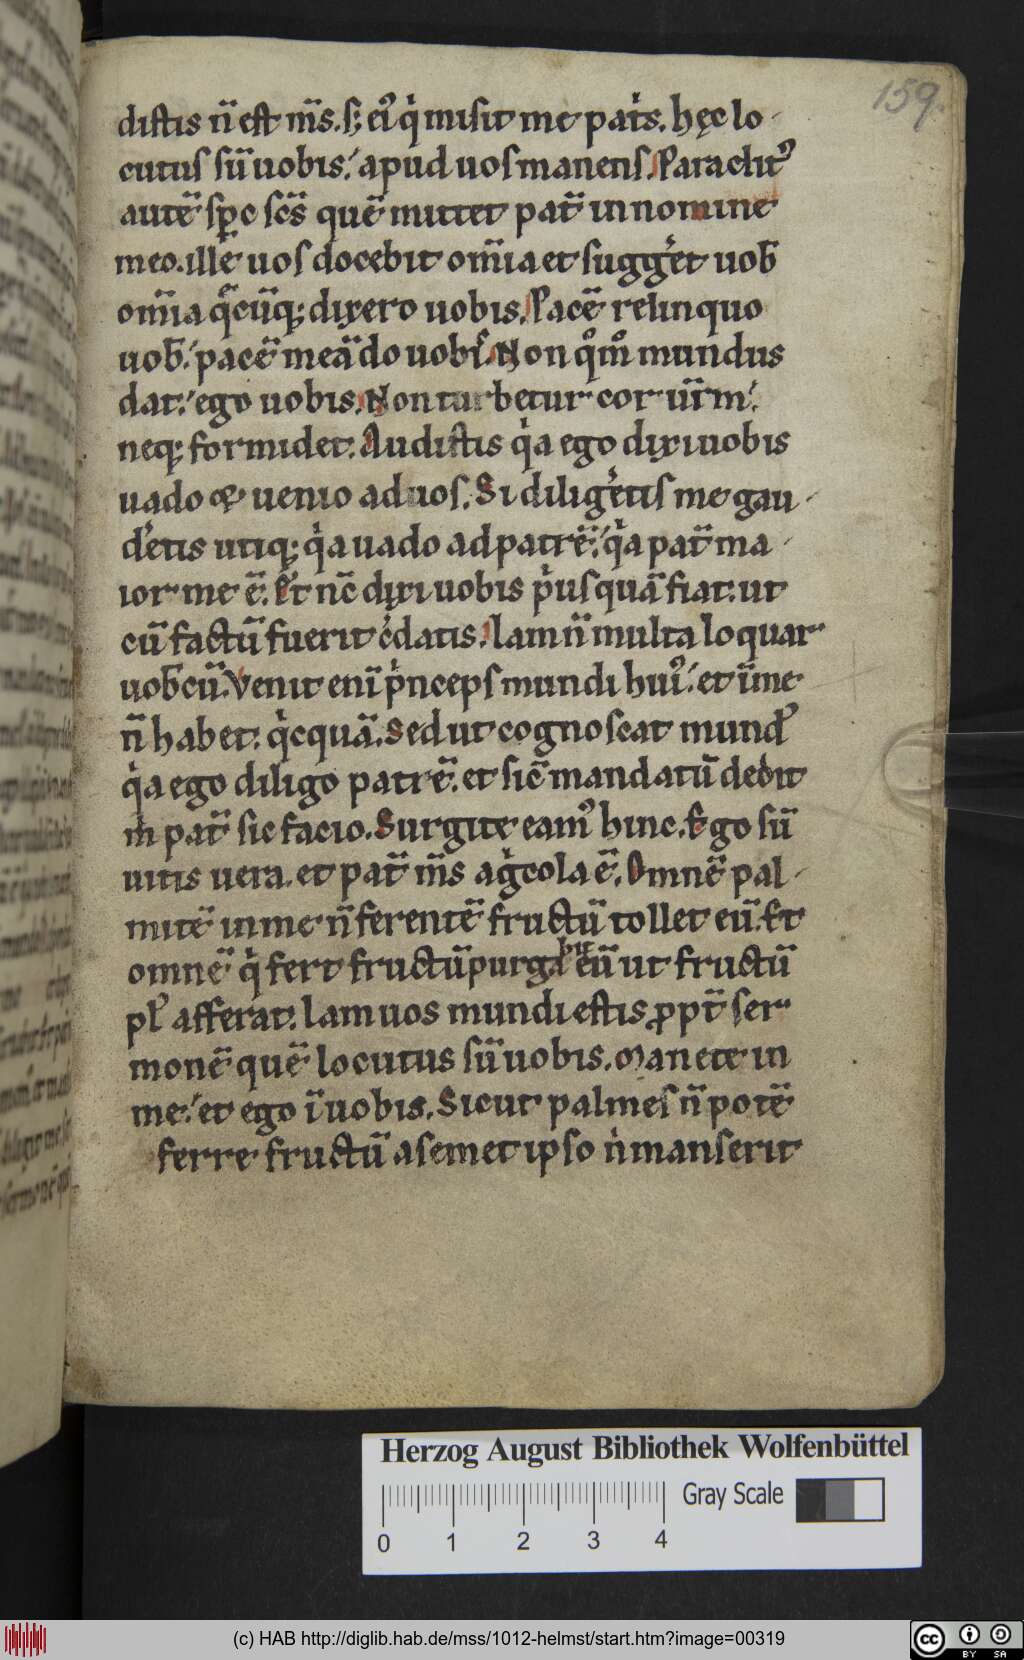 159.
distis n̄ est m̄s. s; ei᷒ q̍ misit me pat̍s. hęc lo-
cutus sū uobis.' apud uos manens. Paraclit᷒
autē sp̄c sc̄s quē mittet pat̄ in nomine
meo. ille uos docebit om̄ia et sugg̍et uob̄
om̄ia q̄cūq; dixero uobis. Pacē relinquo
uob̄.' pacē meā do uob̍. Non q̊m̊ mundus
dat.' ego uobis. Non turbetur cor ūrm.'
neq; formidet. Audistis q̍a ego dixi uobis
uado & uenio ad uos. Si dilig̍etis me gau-
d̍etis utiq; q̍a uado ad patrē.' q̍a pat̄ ma-
ior me ē. Et nc̄ dixi uobis p̍us quā fiat. ut
cū factū fuerit c̍datis. Iam n̄ multa loquar
uob̄cū. Venit enī p̍nceps mundi hui᷒.' et ī me
n̄ habet. q̍cquā. Sed ut cognoscat mund᷒
q̍a ego diligo patrē. et sic̄ mandatū dedit
m̍ pat̄ sic facio. Surgite eam᷒ hinc. Ego sū
uitis uera. et pat̄ m̄s ag̍cola ē. Omnē pal-
mitē in me n̄ ferentē fructū tollet eū. Et
omnē q̍ fert fructū purga bit eū ut fructū
pl᷒ afferat. Iam uos mundi estis ꝓpt̄ ser-
monē quē locutus sū uobis. Manete in
me.' et ego ī uobis. Sicut palmes n̄ potē
ferre fructū a semet ipso n̍ manserit
Herzog August Bibliothek Wolfenbüttel
Gray Scale
0 1 2 3 4
(c) HAB http://diglib.hab.de/mss/1012-helmst/start.htm?image=00319
cc BY SA